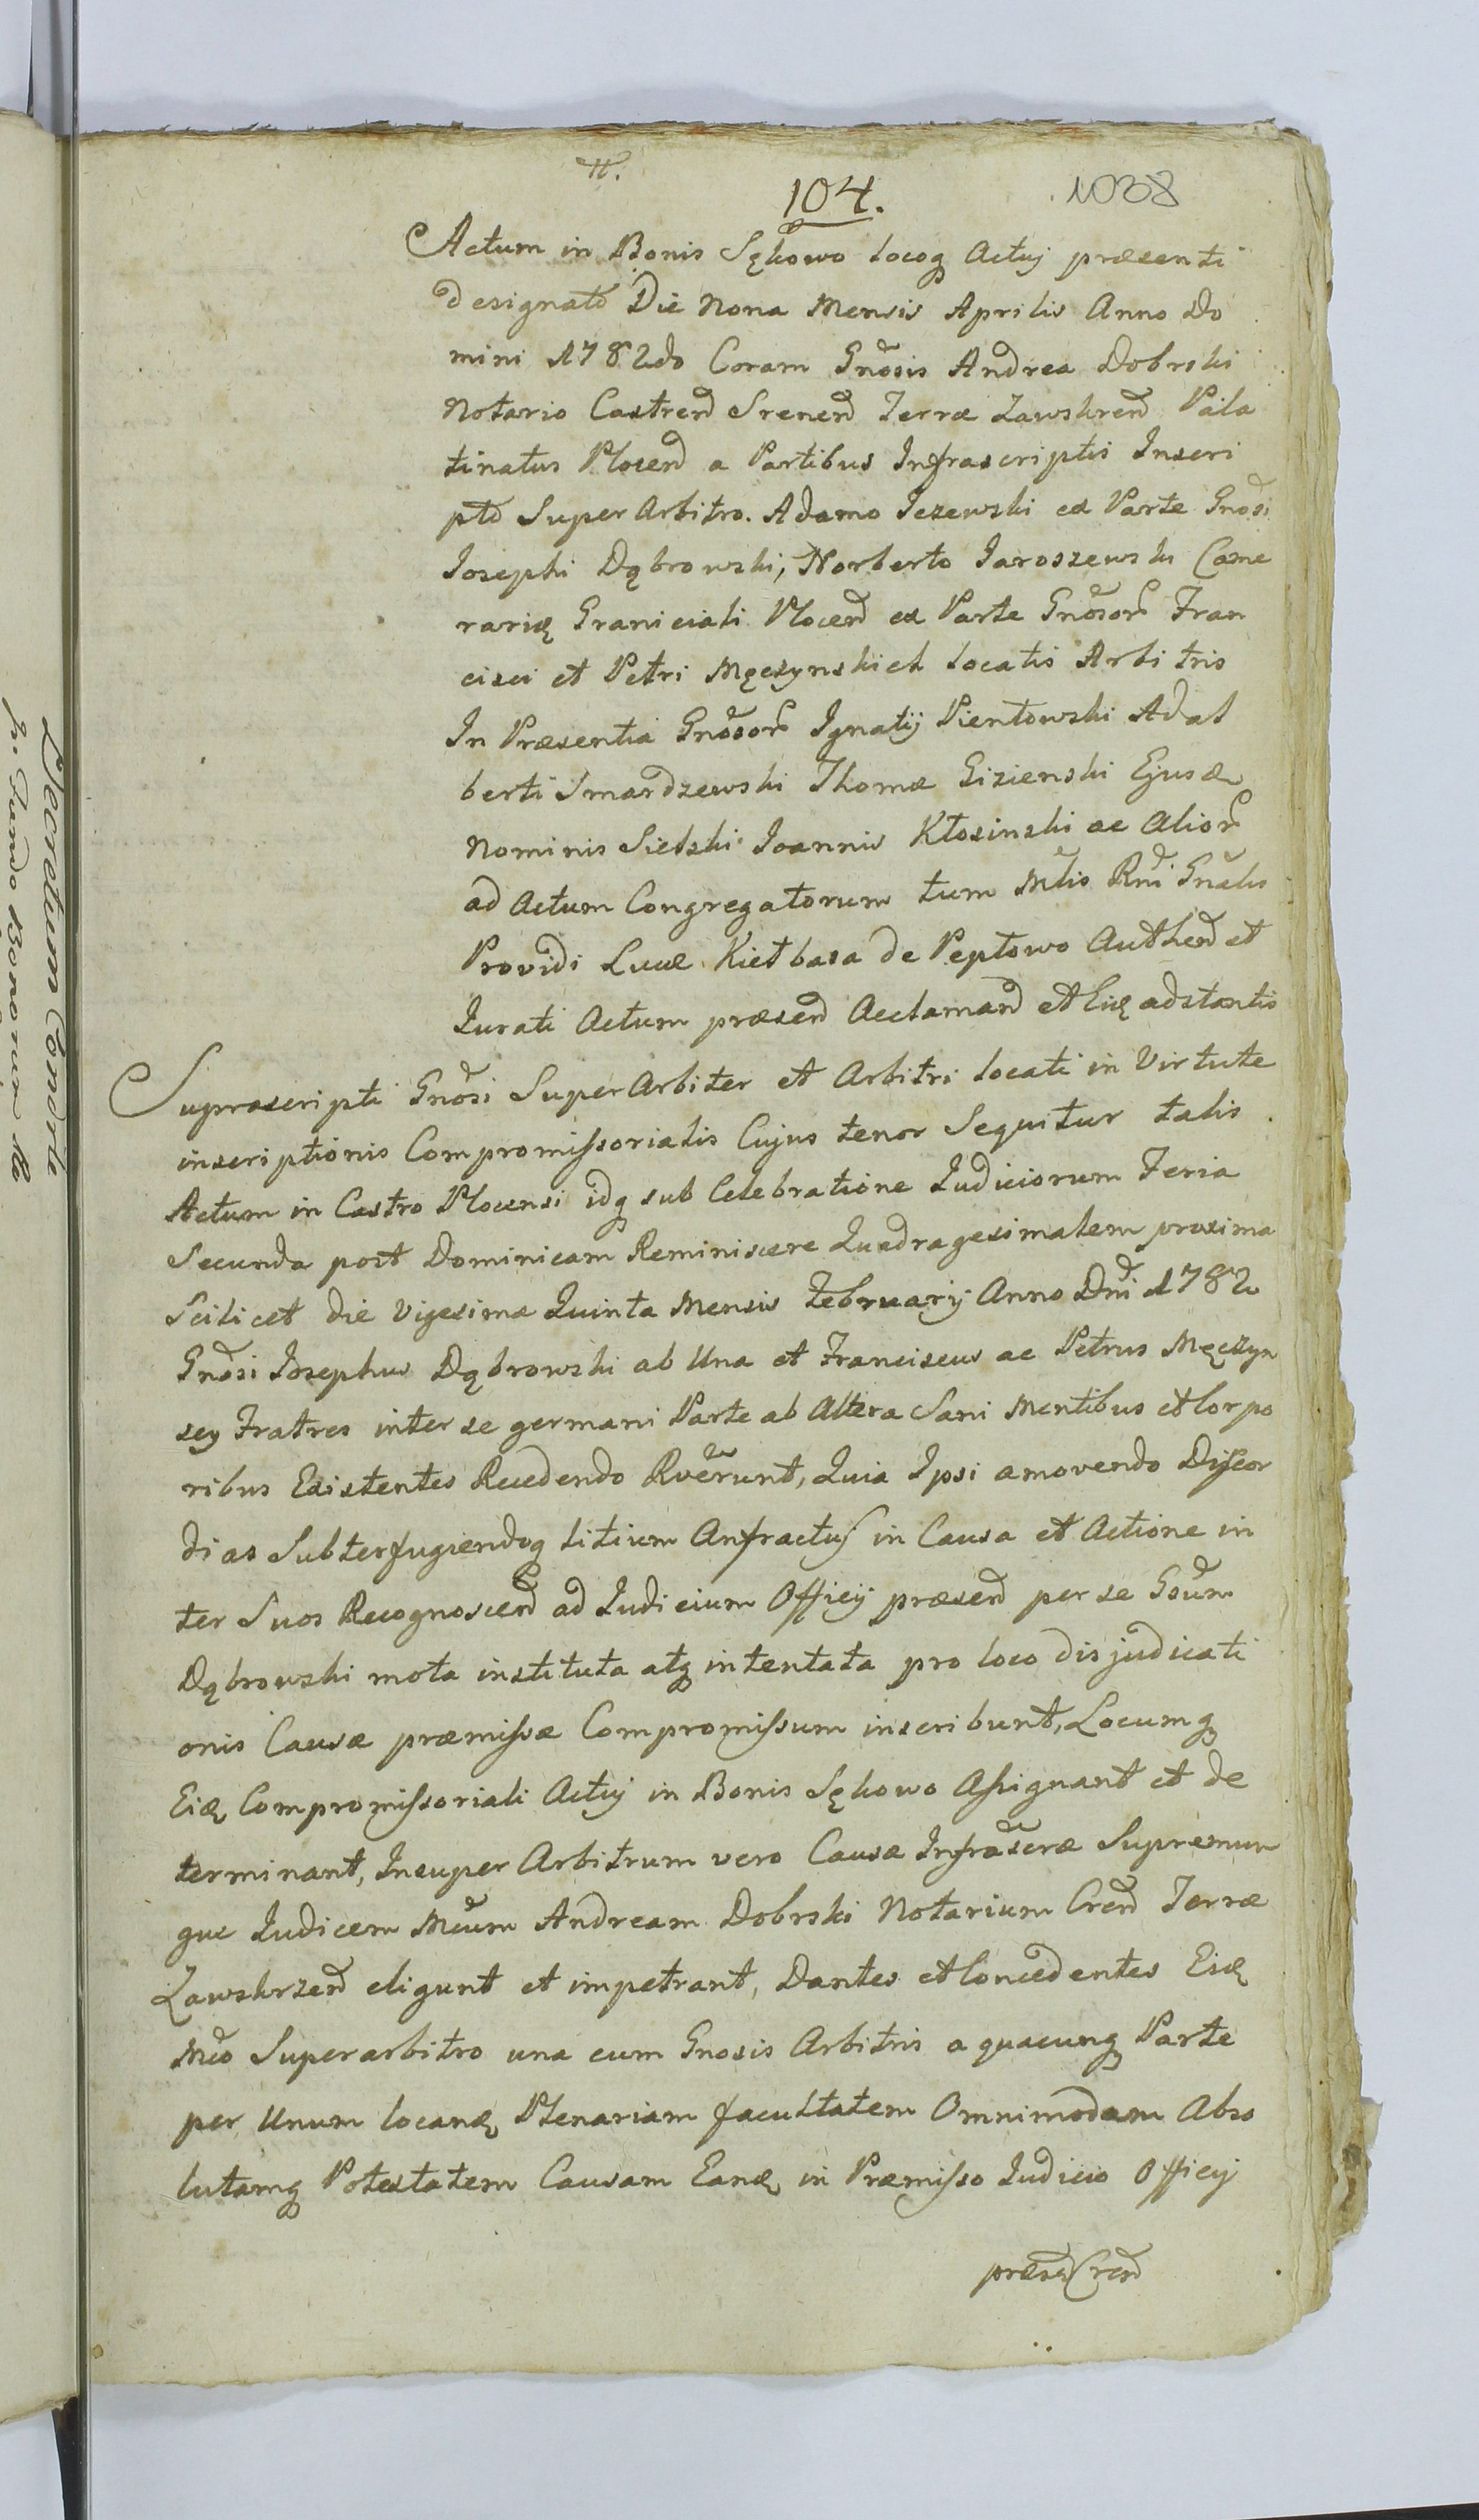 104.
1038
Actum in Bonis Sękowo locoq Actuj præsenti
designato Die Nona Mensis Aprilis Anno Do
mini 1782do Coram Gnosis Andrea Dobrski
Notario Castrend Srenend Terræ Zawskrend Pala
tinatus Plocend a Partibus Infrascriptis Inscri
pto Super Arbitro. Adamo Jezewski ex Parte Gnosi
Josephi Dąbrowski, Norberto Jaroszewski Came
rarię Graniciali Plocend ex Parte Gnosor Fran
cisci et Petri Męczynskich locatis Arbitris
In Præsentia Gnosor Ignatij Pientowski Adal
berti Smardzewski Thomæ Gizienski Ejusd
Nominis Sielski Joannis Kłosinski ac Alior
ad Actum Congregatorum tum Mtis Rni Gnalis
Providi Lucæ Kiełbasa de Peptowo Authend et
Jurati Actum præsend Acclamand et Eię adstantis
Suprascripti Gnosi SuperArbiter et Arbitri locati in Virtute
inscriptionis Compromissorialis Cujus tenor Sequitur talis
Actum in Castro Plocensi idq sub Celebratione Judiciorum Feria
Secunda post Dominicam Reminiscere Quadragesimalem proxima
Scilicet die Vigesima Quinta Mensis Februarij Anno Dni 1782
Gnosi Josephus Dąbrowski ab Una et Franciscus ac Petrus Męczyn
scy Fratres inter se germani Parte ab Altera Sani Mentibus et Corpo
ribus Existentes Recedendo Rverunt, Quia Ipsi amovendo Discor
dias Subterfugiendoq litium Anfractus in Causa et Actione in
ter Suos Recognoscend ad Judicium Officij præsend per se Gsum
Dąbrowski mota instituta atq intentata pro loco disjudicati
onis Causæ præmissæ Compromissum inscribunt, Locumq
Eid Compromissoriali Actuj in Bonis Sękowo Assignant et de
terminant, Insuper Arbitrum vero Causæ Infrascræ Supremum
que Judicem Mcum Andream Dobrski Notarium Crend Terræ
Zawskrzend eligunt et impetrant, Dantes et Concedentes Eid
Mco Superarbitro una cum Gnosis Arbitris a quacunq Parte
per Unum locand Plenariam facultatem Omnimodam Abso
lutamq Potestatem Causam Eand in Præmisso Judicio Officij
præsend Crend
Decretum Condesc